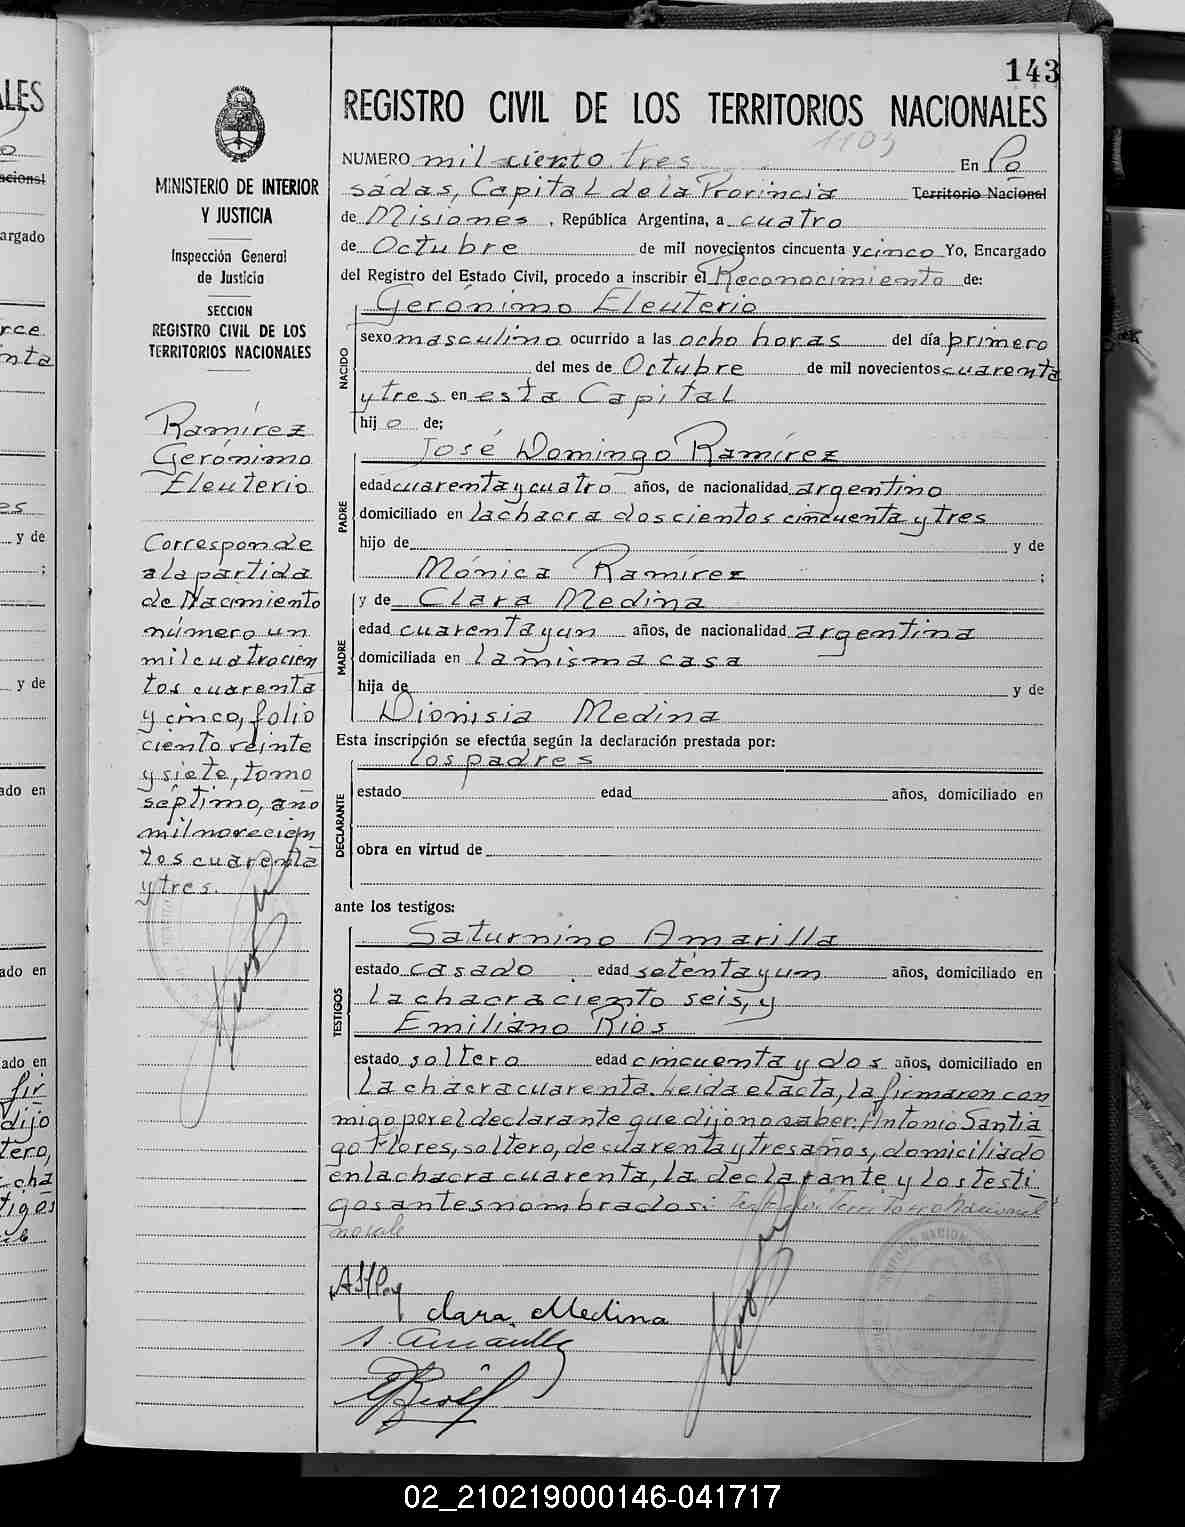 143
REGISTRO CIVIL DE LOS TERRITORIOS NACIONALES
1103
NUMERO mil ciento tres En Po
sadas, Capital de la Provincia Territorio Nacional
de Misiones, República Argentina, a cuatro
de Octubre de mil novecientos cincuenta y cinco Yo, Encargado
del Registro del Estado Civil, procedo a inscribir el Reconocimiento de:
Gerónimo Eleuterio
NACIDO
sexo masculino ocurrido a las ocho horas del día primero
del mes de Octubre de mil novecientos cuarenta
y tres en esta Capital
hijo de;
José Domingo Ramírez
PADRE
edad cuarenta y cuatro años, de nacionalidad argentino
domiciliado en la chacra doscientos cincuenta y tres
hijo de y de
Mónica Ramírez ;
y de Clara Medina
MADRE
edad cuarenta y un años, de nacionalidad argentina
domiciliada en la misma casa
hija de y de
Dionisia Medina
Esta inscripción se efectúa según la declaración prestada por:
los padres
DECLARANTE
estado edad años, domiciliado en
obra en virtud de
ante los testigos:
TESTIGOS
Saturnino Amarilla
estado casado edad setenta y un años, domiciliado en
la chacra ciento seis, y
Emiliano Rios
estado soltero edad cincuenta y dos años, domiciliado en
la chacra cuarenta. Leida el acta, la firmaron con
migo por el declarante que dijo no saber: Antonio Santia
go Flores, soltero, de cuarenta y tres años, domiciliado
en la chacra cuarenta, la declarante y los testi
gos antes nombrados: Territorio Nacional
no vale
Clara Medina
MINISTERIO DE INTERIOR
Y JUSTICIA
Inspección General
de Justicia
SECCION
REGISTRO CIVIL DE LOS
TERRITORIOS NACIONALES
Ramírez
Gerónimo
Eleuterio
Corresponde
a la partida
de Nacimiento
número un
mil cuatrocien
tos cuarenta
y cinco, folio
ciento veinte
y siete, tomo
séptimo, año
mil novecien
tos cuarenta
y tres.
02_210219000146-041717